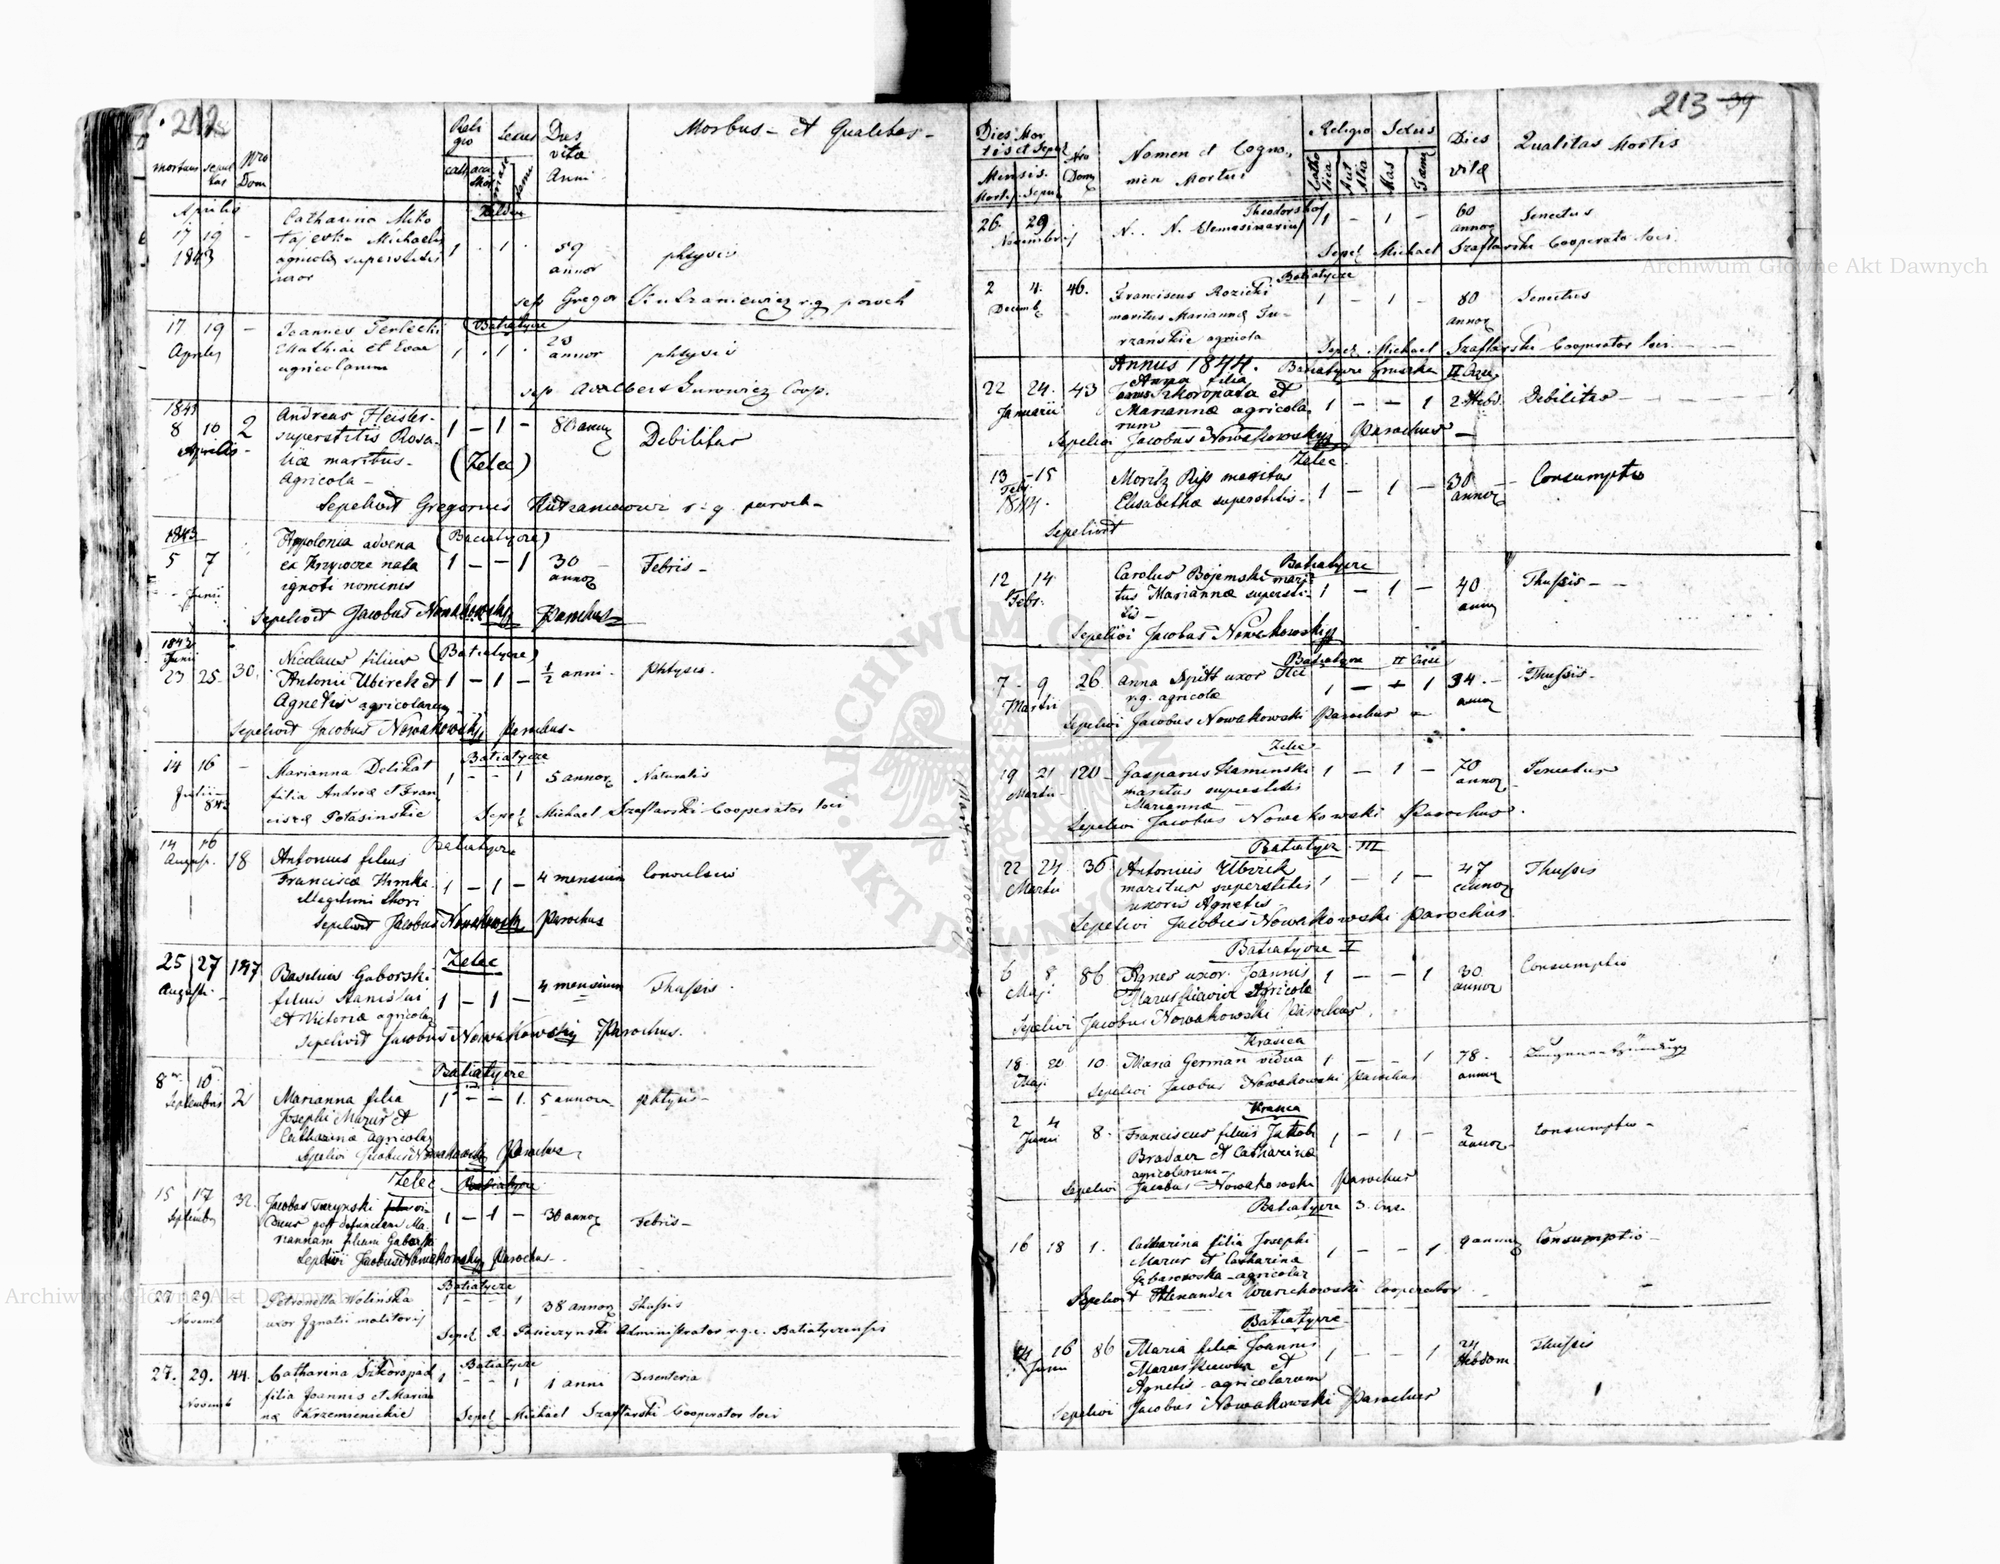 212
Religio Sexus Dies vitæ Anni Morbus et Qualitas
mortuus sepultus Nro Dom cath.
Aprilis Catharina Miko
17 19 – łajeska Michaelis 1 . 1 . 59 annor phtysis
1843 agricolæ superstitis
uxor
sep Gregor r.g. paroch
17 19 – Joannes Terlecki (Batiatycze)
Aprilis Mathiæ et Evæ 1 . 1 . annor phtysis
agricolarum
sep. Adalbert Gurowicz Coop.
1843
8 10 2 Andreas Heisler 1 – 1 – 80 annor Debilitas
Aprilis superstitis Rosa-
liæ maritus (Zelec)
Agricola –
Sepelivit Gregorius r. g. paroch –
1843 Appolonia advena (Batiatycze)
5 7 ex Krzywcze nata 1 – – 1 30 annor Febris –
Junii ignoti nominis
Sepelivit Jacobus Nowakowsky Parochus
1843
Junii Nicolaus filius (Batiatycze)
23 25 30. Antonii Ubirek et 1 – 1 – ½ anni phtysis
Agnetis agricolarum
Sepelivit Jacobus Nowakowsky parochus –
14 16 – Marianna Delikat Batiatycze 1 – – 1 5 annor Naturalis
Julii 843 filia Andreæ et Fran-
ciscæ Potasinskie Sepel Michael Szaflarski Cooperator loci
14 16 18 Antonius filius Batiatycze
August. Franciscæ Hrynka 1 – 1 – 4 mensium Convulsio
illegitimi thori
Sepelivit Jacobus Nowakowsky Parochus
25 27 147 Basilius Gaborski Zelec
Augusti filius Stanislai 1 – 1 – 4 mensium Thussis
et Victoriæ agricolar
Sepelivit Jacobus Nowakowsky Parochus.
8 10 Batiatycze
Septembris 2 Marianna filia 1 – – 1. 5 annor phtysis –
Josephi Mazur et
Catharinæ agricolar
Sepelivi Jacobus Nowakowsky Parochus
15 17 32. Zelec Batiatycze
Septembr Jacobus Turynski vi-
duus post defunctam Ma- 1 – 1 – 30 annor Febris –
riannam
Sepelivi Jacobus Nowakowsky Parochus
27 29 Petronella Wolinska Batiatycze 1 – – 1 38 annor Thussis
Novemb uxor Ignatii molitoris
Sepel R. Pasieczynski Administrator r.g.c. Batiatyczensis
27. 29. 44. Catharina Szkoropad Batiatycze 1 – – 1 1 anni Desenteria
Novemb filia Joannis et Marian
næ Krzemienickie Sepel Michael Szaflarski Cooperator loci
213 39
Dies Mortis et Sepul Nro Domy Nomen et Cogno-
men Mortui Religio Sexus Dies vitæ Qualitas Mortis
Mensis Catholica Aut Alia Mas Fæm
26. 29 Theodorshof
Novembris N. N. Elemosinarius 1 – 1 – 60 annor Senectus
Sepel Michael Szaflarski Cooperator loci
2 4. 46. Batiatycze
Decemb Franciscus Rozicki 1 – 1 – 80 annor Senectus
maritus Mariannæ Tu-
rzańskie agricola
Sepel. Michael Szaflarski Cooperator loci
Annus 1844. Batiatycze Gruszka
22 24. 43 Anna filia
Januarii Szkoropada et 1 – – 1 2 Hebd. Debilitas
Mariannæ agricola
rum
Sepelivi Jacobus Nowakowsky Parochus –
Zelec.
13 –15 Moritz Rips maritus
Feb. 1844. Elisabethæ superstitis – 1 – 1 – 30 annor Consumptio
Sepelivit
Batiatycze
12 14 Carolus Bojemski mari- 1 – 1 – 40 annor Thussis –
Febr. tus Mariannæ supersti-
tis –
Sepelivi Jacobus Nowakowsky
Batiatycze II
7 9 26 Anna Spitt uxor 1 – – 1 34 – annor Thussis –
Martii r.g. agricolæ
Sepelivi Jacobus Nowakowski Parochus –
Zelec
19 21 120 Gasparus Kaminski 1 – 1 – 70 annor Senectus
Martii maritus superstitis
Mariannæ –
Sepelivi Jacobus Nowakowski Parochus
Batiatycz. III
22 24 36 Antonius Ubirek 1 – 1 – 47 annor Thussis
Martii maritus superstitis
uxoris Agnetis
Sepelivi Jacobus Nowakowski parochus
Batiatycze I
6 8 86 Agnes uxor Joannis 1 – – 1 30 annor Consumptio
Maji Maruskiewicz Agricolæ
Sepelivi Jacobus Nowakowski Parochus.
Krasica
18. 20 10. Maria German vidua 1 – – 1 78. annor
Maji Sepelivi Jacobus Nowakowski Parochus
Krasica
2 4 8. Franciscus filius Jakob 1 – 1 – 2 annor – Consumptio –
Junii Bradacz et Catharinæ
agricolarum –
Sepelivi Jacobus Nowakowski Parochus
Batiatycze 3.
16 18 1. Catharina filia Josephi 1 – – 1 Consumptio –
Mazur et Catharina
agricolar
Sepelivit Alexander Cooperator
Batiatycze
14 16 86 Maria filia Joannis 1 – – 1 24 Hebdom Thussis
Junii Maruskiewicz et
Agnetis – agricolarum
Sepelivi Jacobus Nowakowski Parochus
Archiwum Główne Akt Dawnych
Archiwum Główne Akt Dawnych
ARCHIWUM GŁÓWNE AKT DAWNYCH